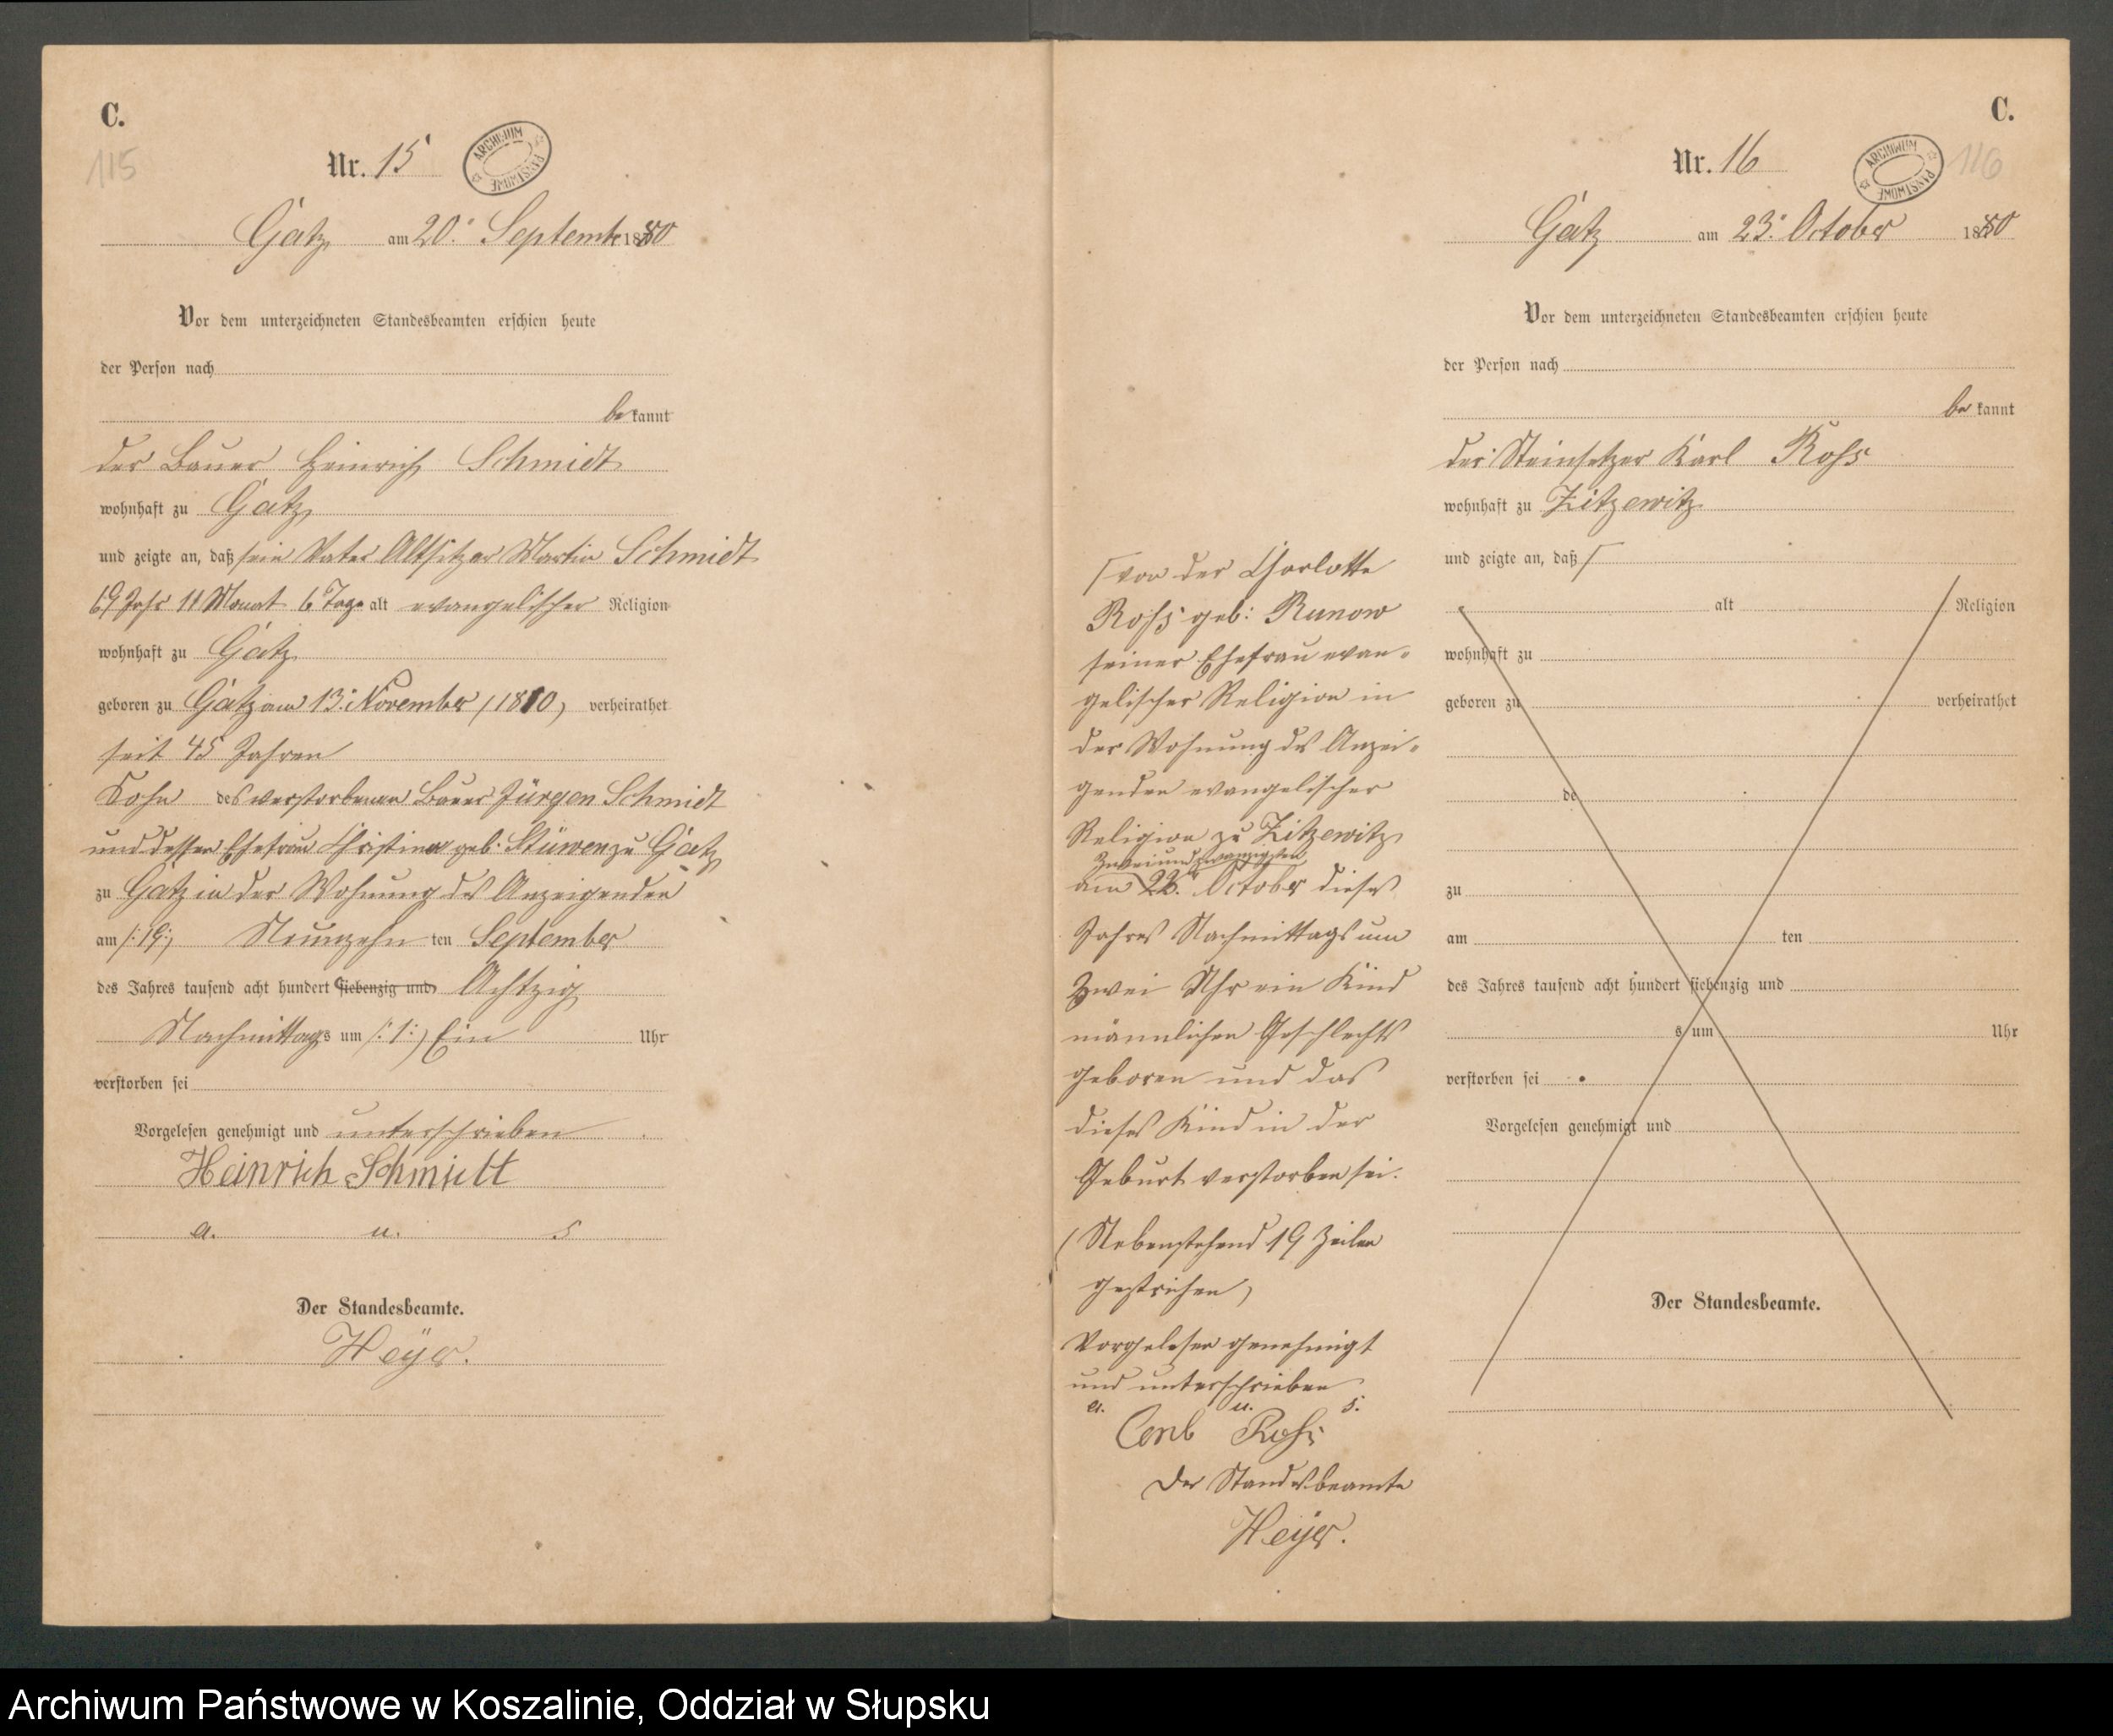 C.
115
Nr. 15
ARCHIWUM PAŃSTWOWE
Gatz am 20. Septembr 1880
Vor dem unterzeichneten Standesbeamten erschien heute
der Person nach
be kannt
der Bauer Heinrich Schmidt
wohnhaft zu Gatz
und zeigte an, daß sein Vater Altsitzer Martin Schmidt
69 Jahr 11 Monat 6 Tage alt evangelischer Religion
wohnhaft zu Gatz
geboren zu Gatz am 13. November /1810, verheirathet
seit 45 Jahren
Sohn des verstorbenen Bauer Jürgen Schmidt
und dessen Ehefrau Christine geb. Stüwen zu Gatz
zu Gatz in der Wohnung des Anzeigenden
am /:19:/ Neunzehn ten September
des Jahres tausend acht hundert siebenzig und Achtzig
Nachmittags um /:1:/ Ein Uhr
verstorben sei
Vorgelesen genehmigt und unterschrieben
Heinrich Schmidt
a. u. s
Der Standesbeamte.
Heyer.
C.
116
Nr. 16
ARCHIWUM PAŃSTWOWE
Gatz am 23. October 1880
Vor dem unterzeichneten Standesbeamten erschien heute
der Person nach
be kannt
der Steinsetzer Karl Roß
wohnhaft zu Zitzewitz
und zeigte an, daß
alt Religion
wohnhaft zu
geboren zu verheirathet
de
zu
am ten
des Jahres tausend acht hundert siebenzig und
s um Uhr
verstorben sei
Vorgelesen genehmigt und
Der Standesbeamte.
von der Charlotte
Roß geb: Runow
seiner Ehefrau evan-
gelischer Religion in
der Wohnung des Anzei-
genden evangelischer
Religion zu Zitzewitz
Zweiundzwanzigsten
am 22. October dieses
Jahres Nachmittags um
Zwei Uhr ein Kind
männlichen Geschlechts
geboren und das
dieses Kind in der
Geburt verstorben sei.
(Nebenstehend 19 Zeilen
gestrichen)
Vorgelesen genehmigt
und unterschrieben
a. u. s.
Carl Roß
Der Standesbeamte
Heyer.
Archiwum Państwowe w Koszalinie, Oddział w Słupsku